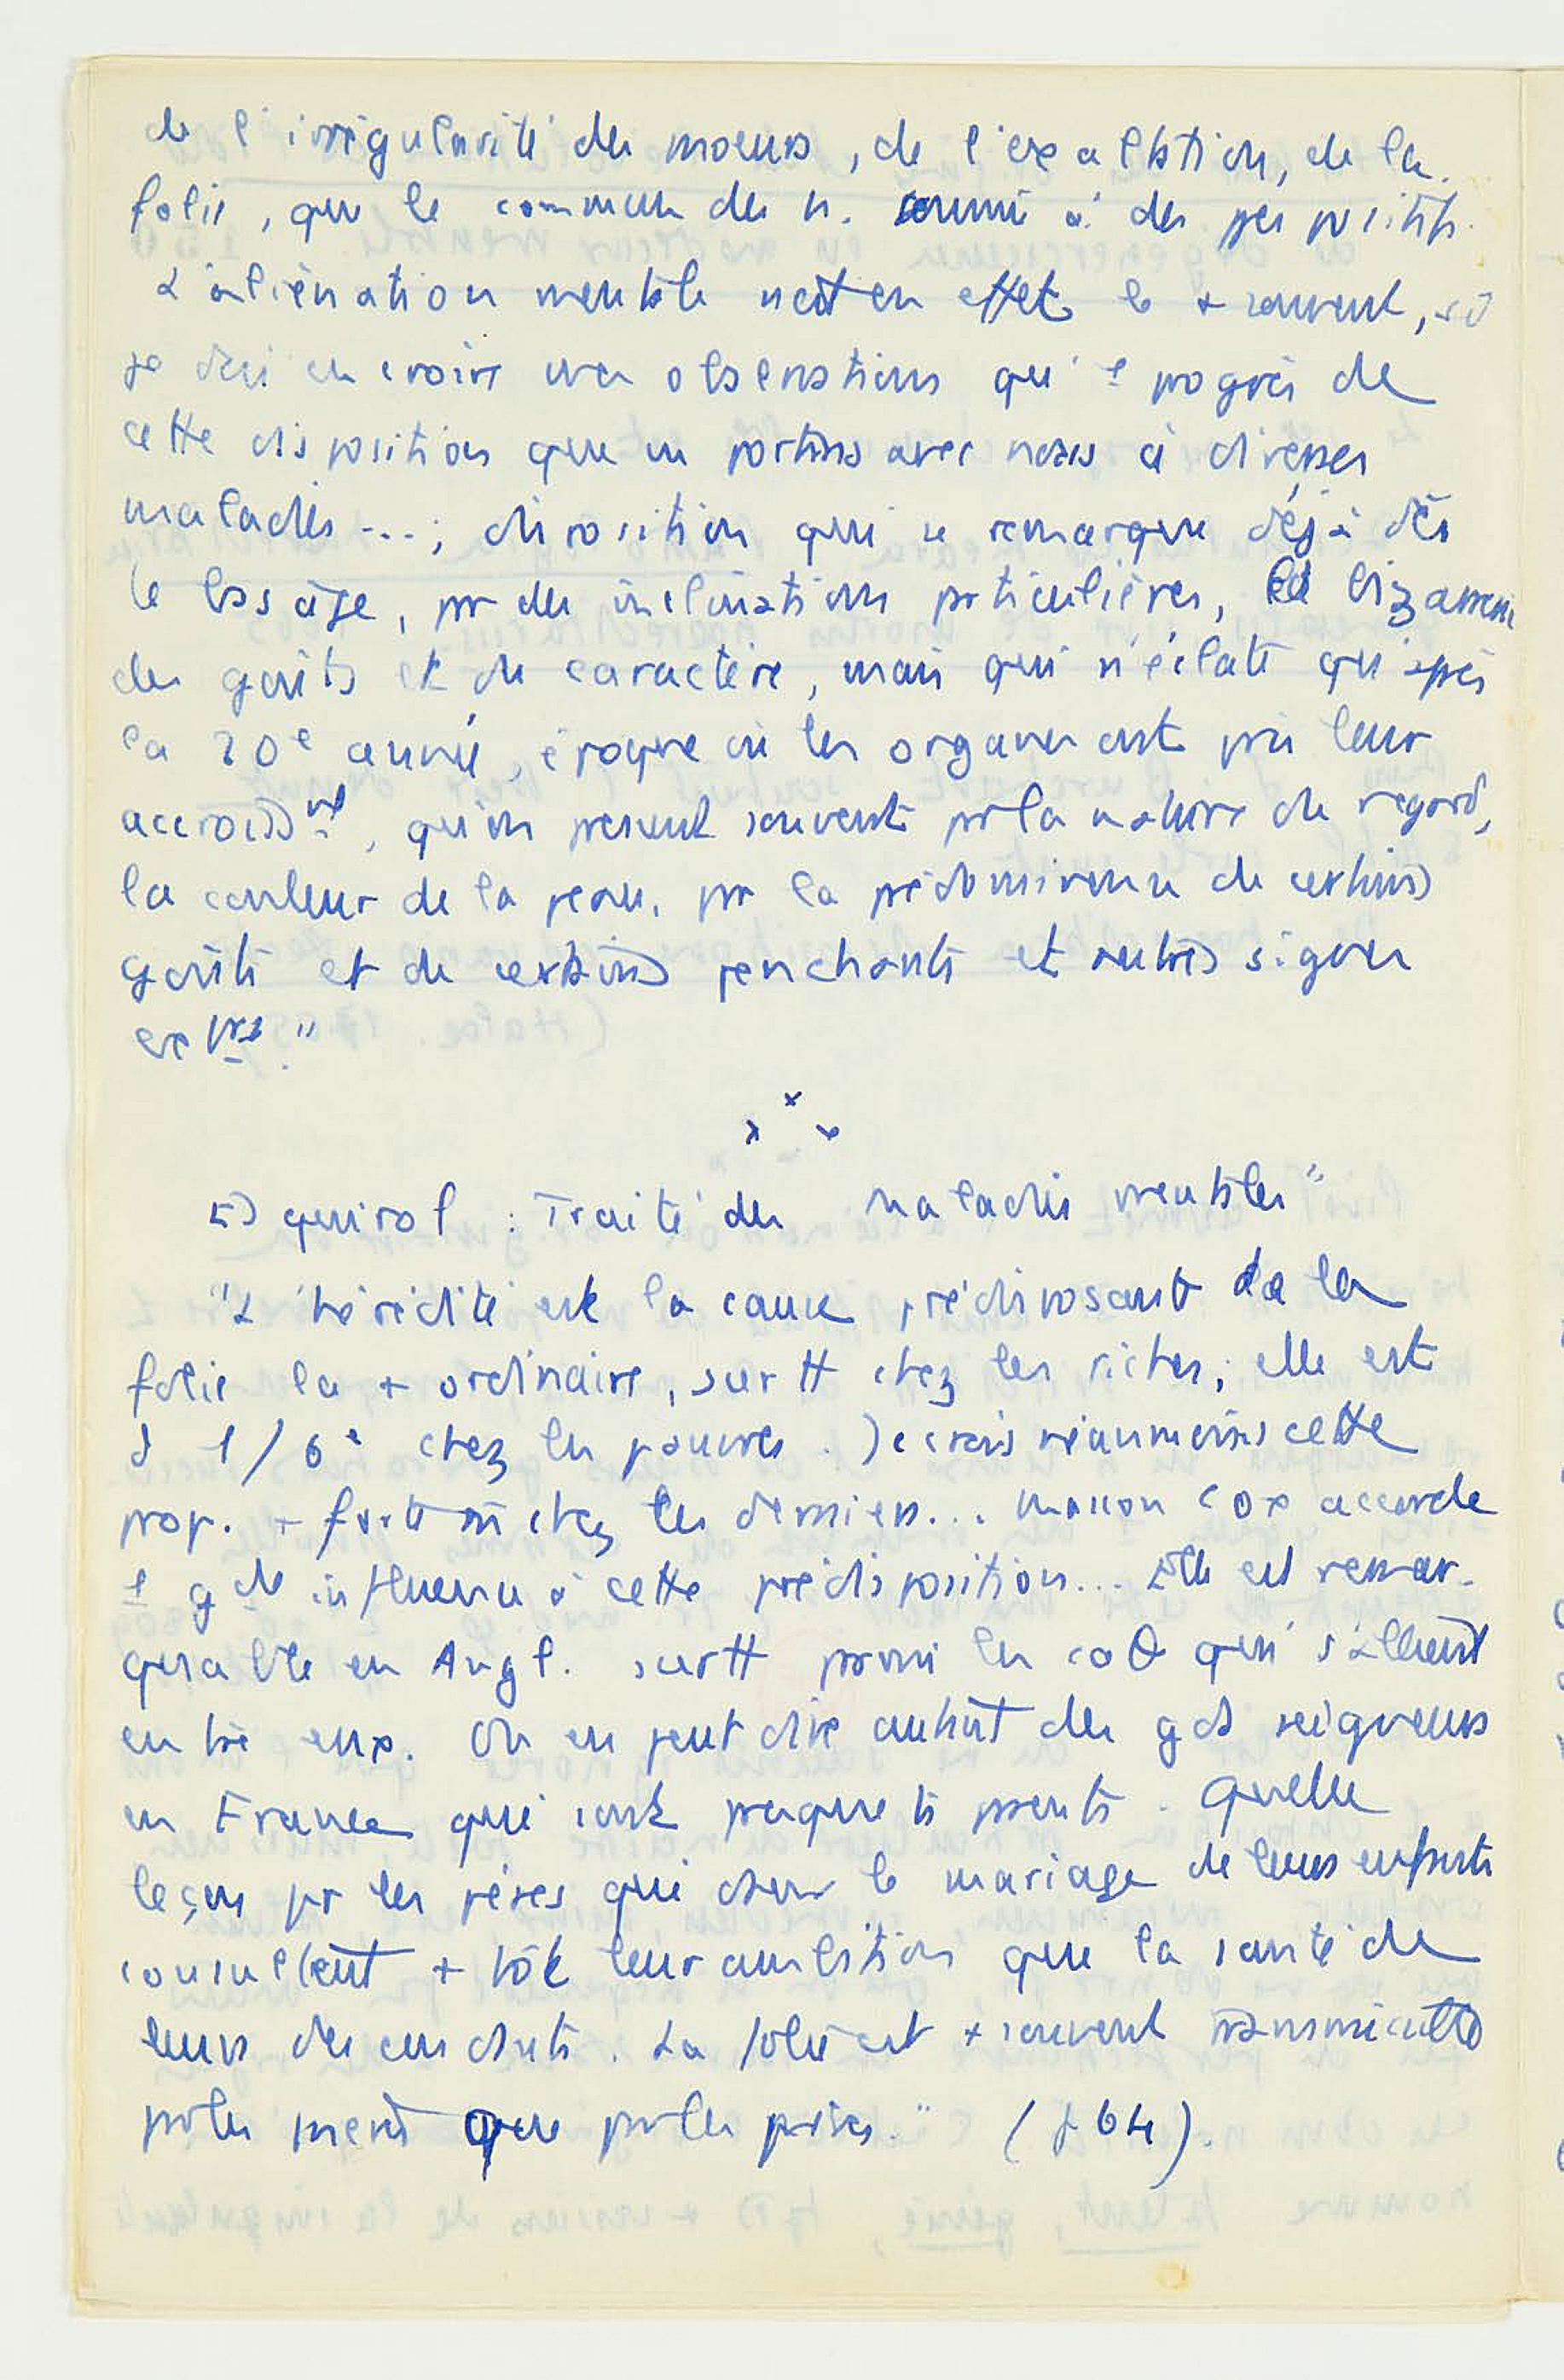 de l'irrégularité des moeurs, de l'exaltation, de la
folie, que le commun des h. soumis à des
L'aliénation mentale n'est en effet le + souvent, si
je dois en croire mes observations qu'1 progrès de
cette disposition que ns portons avec nous à diverses
maladies ...; disposition qui se remarque déjà dès
le bas âge, pr des inclinations particulières, la bizarrerie
des goûts et du caractère, mais qui n'éclate qu'après
la 20e année, époque où les organes ont pris leur
accroisst, qu'on pressent souvent pr la nature du regard,
la couleur de la peau, pr la prédominance de certains
goûts et de certains penchants et autres signes
extrs."
x x x
Esquirol : Traité des Maladies mentales"
"L'hérédité est la cause prédisposant de la
folie la + ordinaire, surtt chez les riches; elle est
d 1/6e chez les pauvres. Je crois néanmoins cette
prop. + forte m chez les derniers... Masson Cox accorde
1 gde influence à cette prédisposition... Elle est remar-
quable en Angl. surtt parmi les caθ qui s'allient
entre eux. On en peut dire autant des gds seigneurs
en France qui sont presque ts parents. Quelle
leçon pr les pères qui dans le mariage de leurs enfants
consultent + tôt leur ambition que la santé de
leurs descendants. La folie est + souvent transmissible
par les mères que par les pères." (p 64).